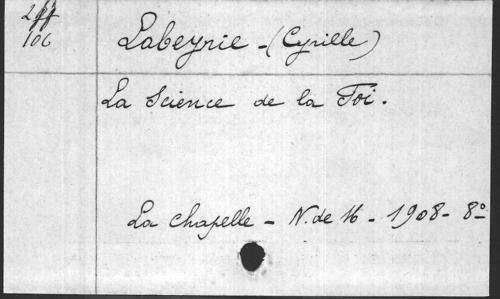 106
Labeyrie - (Cyrille)
La Science de la Foi.
La Chapelle - N. de 16 - 1908 - 8º